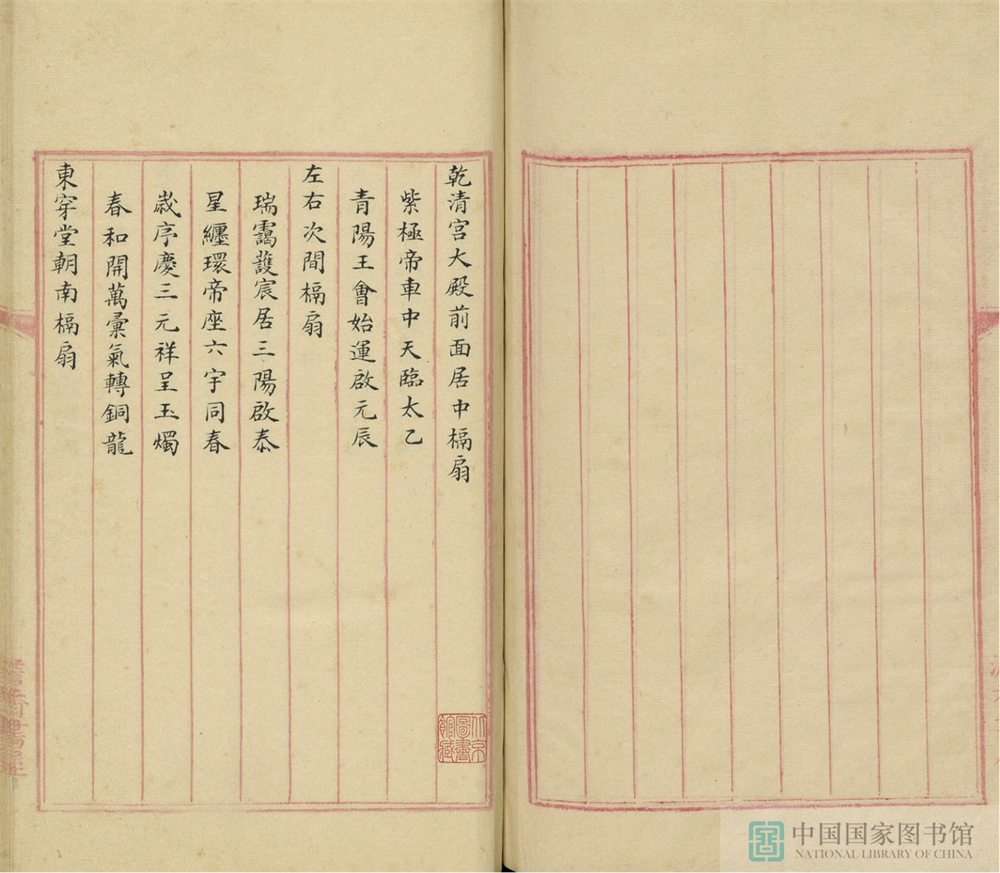 乾清宫大殿前面居中槅扇
紫極帝車中天臨太乙
青陽王會始運啟元辰
左右次間槅扇
瑞靄護宸居三陽啟泰
星纏環帝座六宇同春
歲序慶三元祥呈玉燭
春和開萬彙氣轉銅龍
東穿堂朝南槅扇
北京圖書館藏
中国国家图书馆
NATIONAL LIBRARY OF CHINA